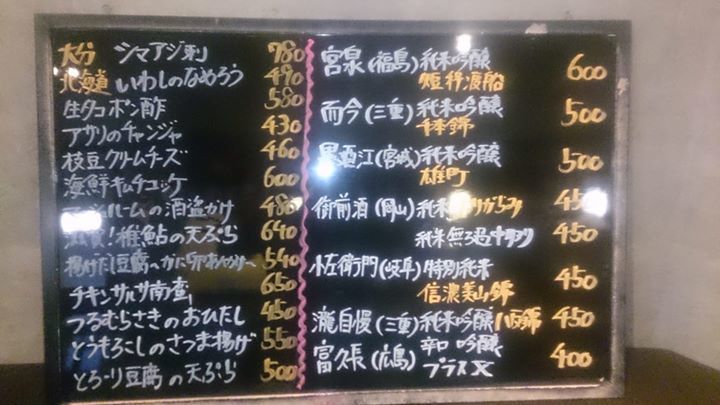 大分 シマアジ刺 780
北海道 いわしのなめろう 490
生タコポン酢 580
アサリのチャンジャ 430
枝豆クリームチーズ 460
海鮮キムチユッケ 600
ルームの酒盗かけ 480
！稚鮎の天ぷら 640
揚げだし豆腐 540
チキンサルサ南蛮 650
つるむらさきのおひたし 450
とうもろこしのさつま揚げ 550
とろーり豆腐の天ぷら 500
宮泉(福島)純米吟醸 600
短稈渡船
而今(三重)純米吟醸 500
千本錦
墨廼江(宮城)純米吟醸 500
雄町
御前酒(岡山)純米 450
純米無ろ過 450
小左衛門(岐阜)特別純米 450
信濃美山錦
瀧自慢(三重)純米吟醸 八反錦 450
富久長(広島) 辛口 吟醸 400
プラスX